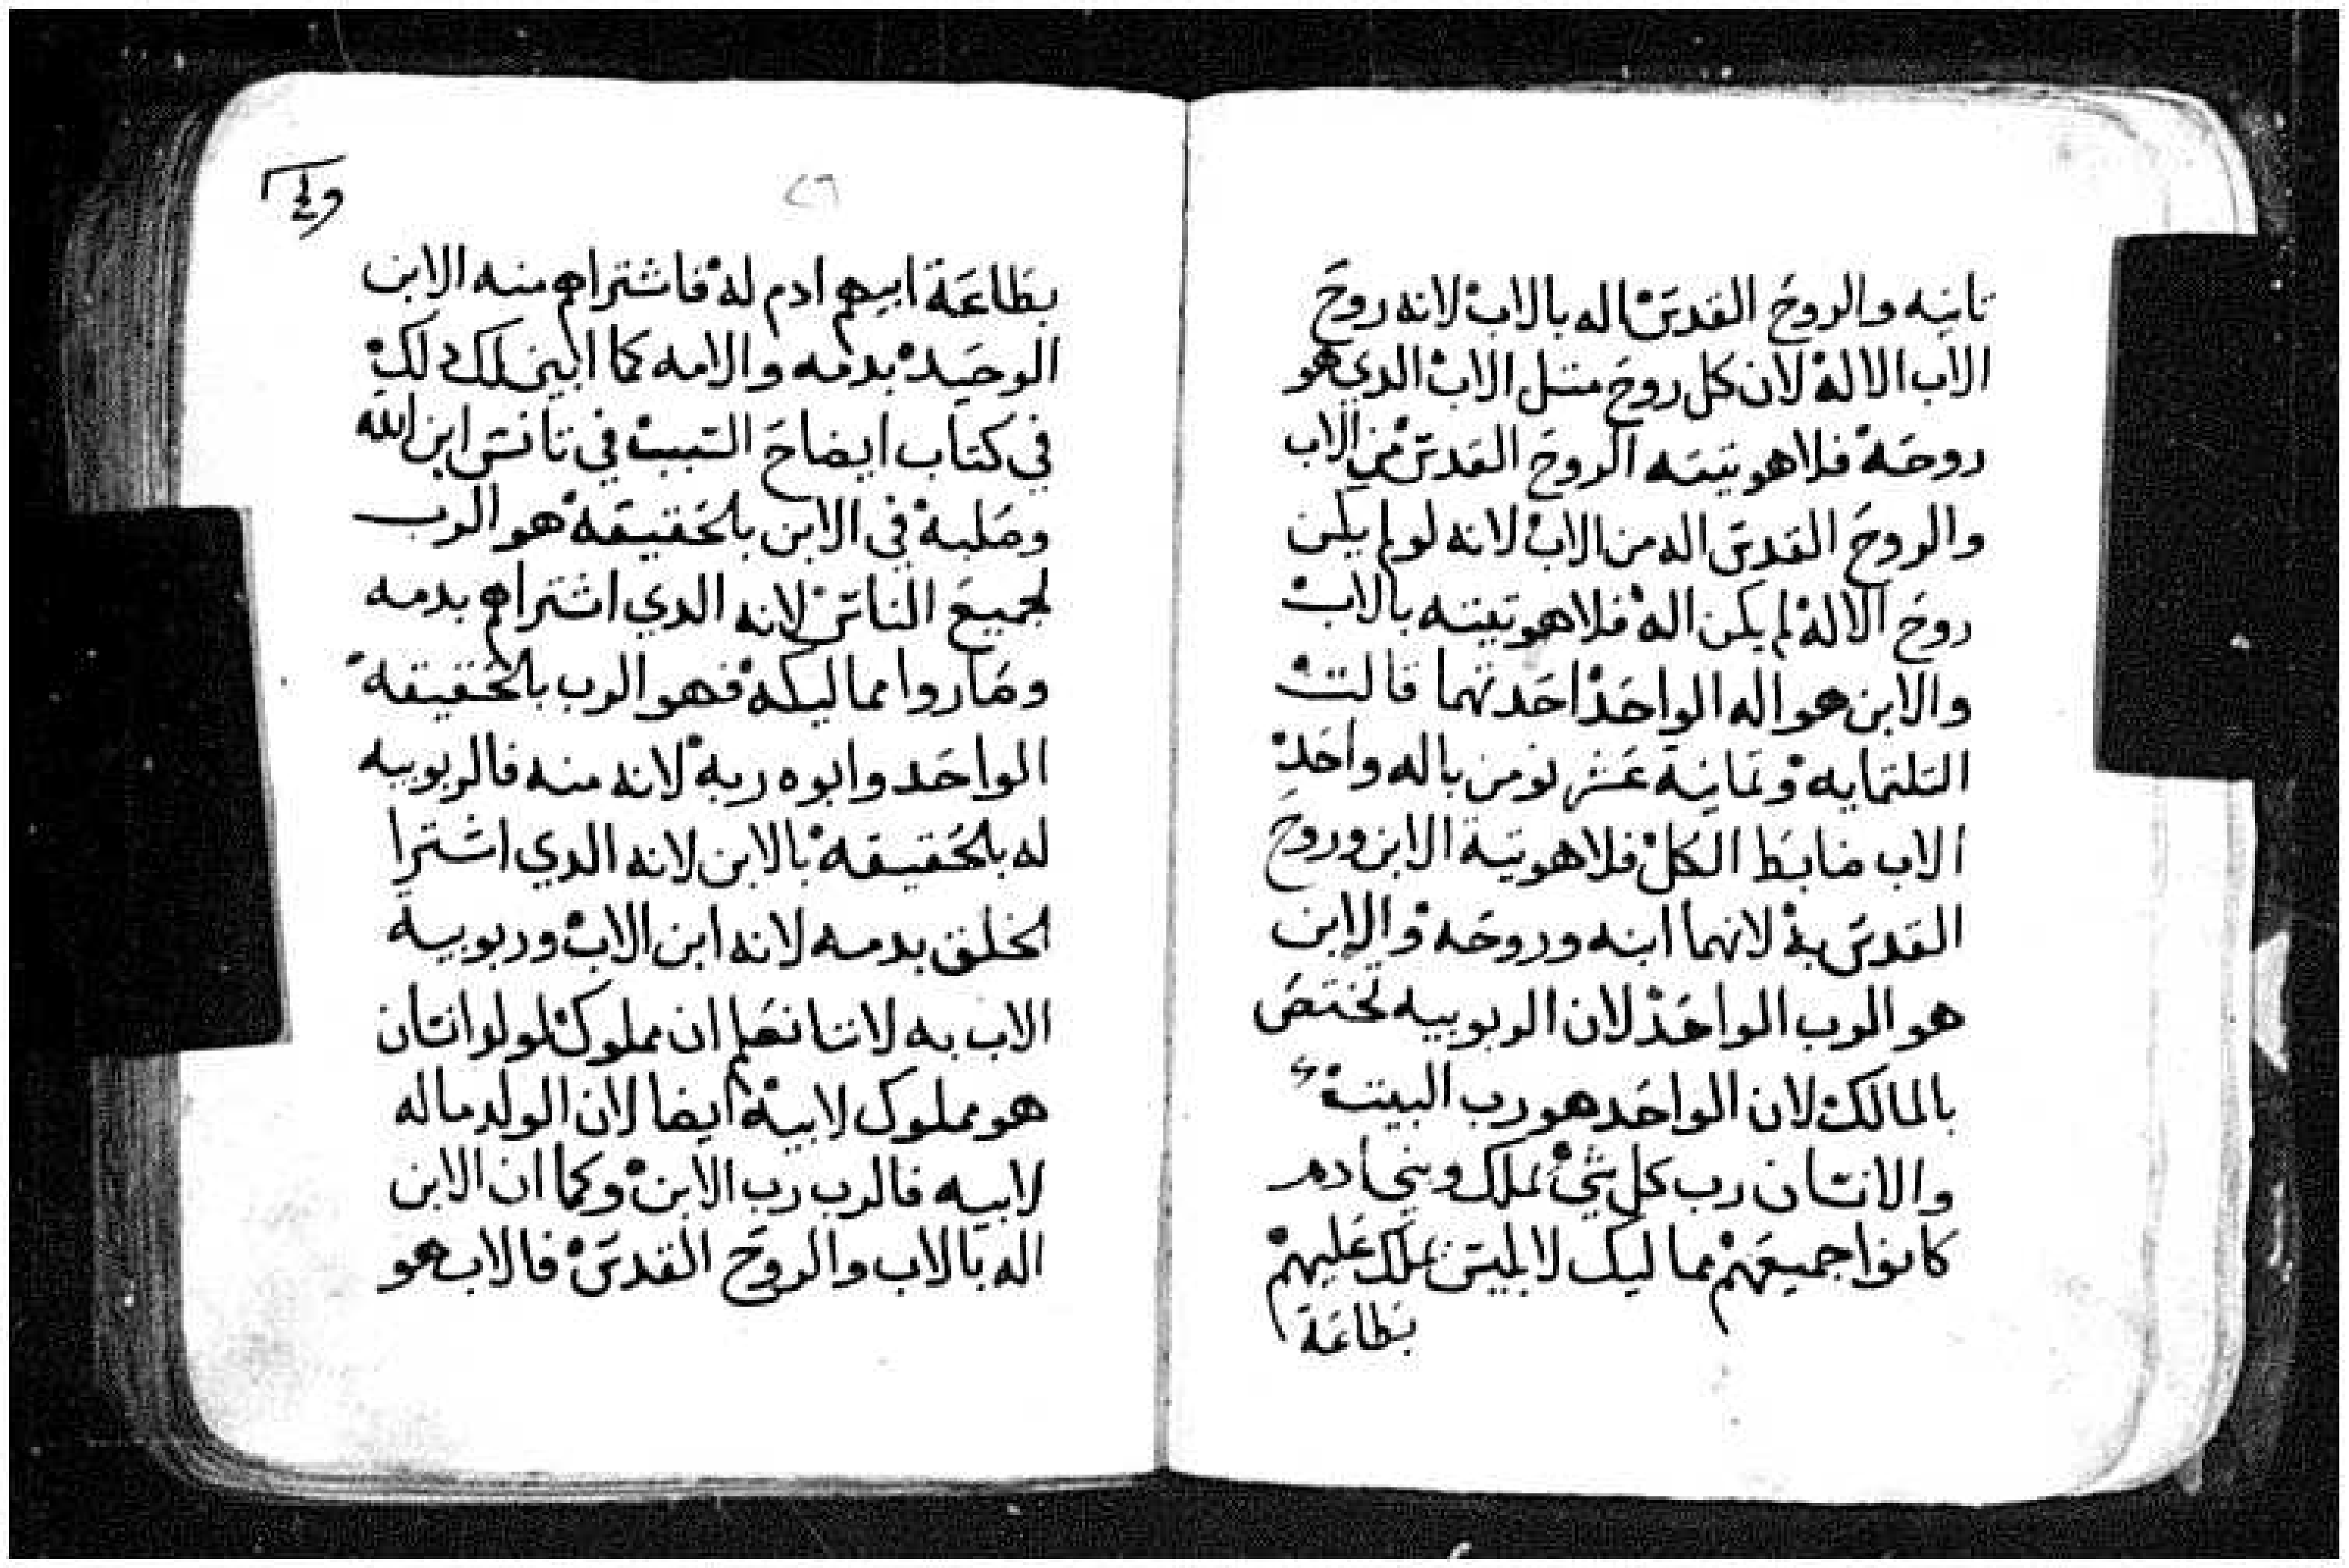 تانيه والروح القدس اله بالاب لانه روح
الاب الاله لان كل روح متل الاب الدي هو
روحه فلاهوتيته الروح القدس من الاب
والروح القدس اله من الاب لانه لو لم يكن
روح الاله لم يكن اله فلاهوتيته بالاب
والابن هو اله الواحد احدتهما قالت
التلتمايه وتمانية عشر نومن باله واحد
الاب ضابط الكل فلاهوتية الابن وروح
القدس به لانهما ابنه وروحه والابن
هو الرب الواحد لان الربوبيه تختص
بالمالك لان الواحد هو رب البيت
والانسان رب كل شي يملك وبني ادم
كانوا جميعهم مماليك لابليس يملك عليهم
بطاعة
٢٦
بطاعة ابيهم ادم له فاشتراهم منه الابن
الوحيد بدمه والامه كما ابين لك دلك
في كتاب ايضاح السبب في تانس ابن الله
وصلبه في الابن بالحقيقه هو الرب
لجميع الناس لانه الدي اشتراهم بدمه
وصاروا مماليكه فهو الرب بالحقيقه
الواحد وابوه ربه لانه منه فالربوبيه
له بالحقيقه بالابن لانه الدي اشترا
الخلق بدمه لانه ابن الاب وربوبية
الاب به لاننا نعلم ان مملوك لولد انسان
هو مملوك لابيه ايضا لان الولد ماله
لابيه فالرب رب الابن وكما ان الابن
اله بالاب والروح القدس فالاب هو